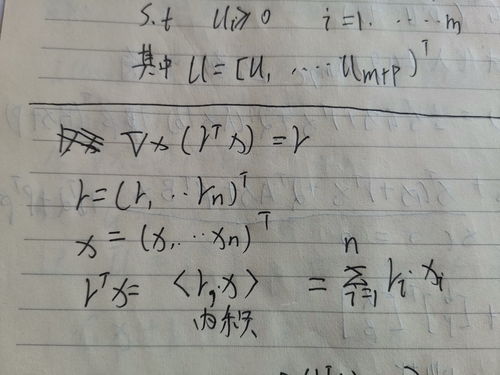 s.t u_i≥0 i=1. ..... m
其中 U=[u, ..... u_{m+p})^T
∇x (r^T x) = r
r=(r, .. r_n)^T
x = (x, ... x_n)^T
r^T x= <r, x> = \sum_{i=1}^{n} r_i · x_i
内积